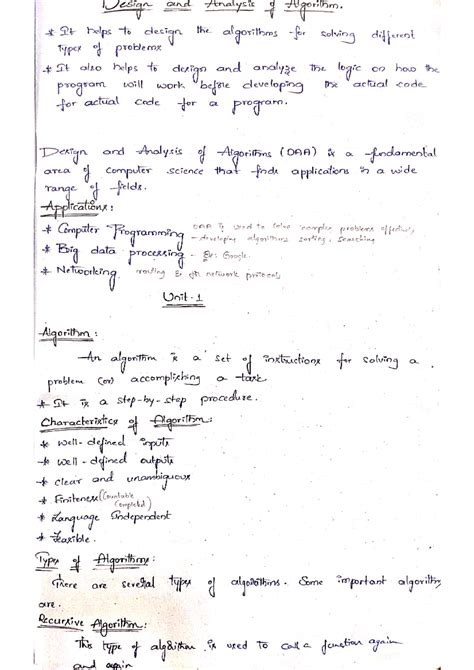 Design and Analysis of Algorithm.
* It helps to design the algorithms for solving different
types of problems
* It also helps to design and analyze the logic on how the
program will work before developing the actual code
for actual code for a program.
Design and Analysis of Algorithms (DAA) is a fundamental
area of computer science that finds applications in a wide
range of fields.
Applications:
* Computer Programming - DAA is used to solve complex problems effectively
- developing algorithms sorting, searching
* Big data processing - Ex: Google.
* Networking. routing & network protocols
Unit-1
Algorithm:
An algorithm is a set of instructions for solving a
problem (or) accomplishing a task
* It is a step-by-step procedure.
Characteristics of Algorithm:
* Well-defined inputs
* Well-defined outputs
* clear and unambiguous
* Finiteness (Countable
Completed)
* Language Independent
* feasible.
Types of Algorithms:
There are several types of algorithms. Some important algorithms
are.
Recursive Algorithm:
This type of algorithm is used to call a function again
and again